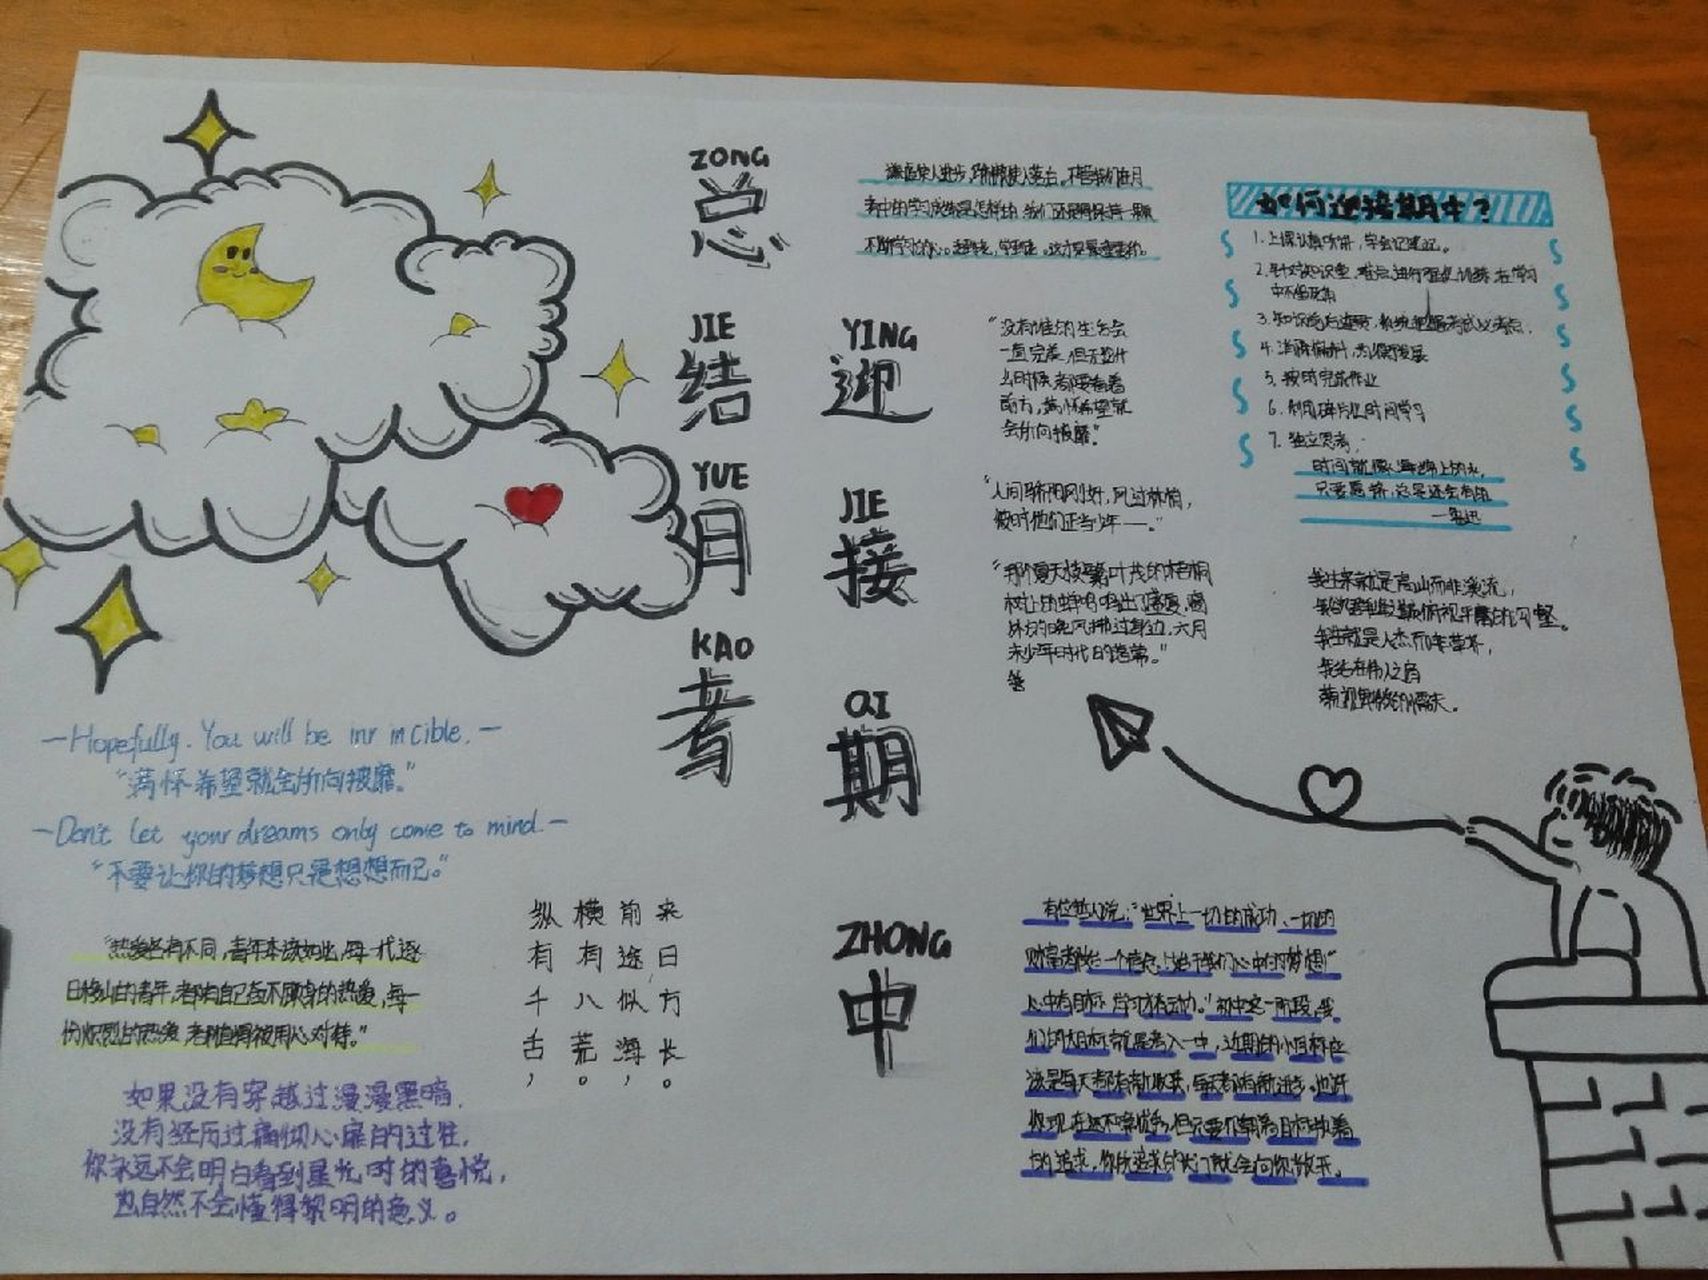 ZONG
总
JIE
结
YUE
月
KAO
考
YING
迎
JIE
接
QI
期
ZHONG
中
谦虚使人进步,骄傲使人落后。不管我们在月
考中的学习成绩是怎样的,我们还是要保持一颗
不断学习的心。
如何迎接期中?
1.上课认真听讲,学会记笔记。
2.针对知识重、难点进行强化训练,在学习
中不留死角
3.
4.
5.按时完成作业
6.利用碎片化时间学习
7.独立思考:
时间就像海绵上的水,
只要愿挤,总是还会有的
—鲁迅
“没有谁的生活会
一直完美,但无论什
么时候,都要看着
前方,满怀希望就
会所向披靡。”
“人间骄阳刚好,风过林梢,
彼时他们正当少年——。”
“那个夏天枝繁叶茂的梧桐
树上的蝉鸣鸣出了盛夏,
的晚风拂过身边,六月
我生来就是高山而非溪流,
我生就是人杰而非草芥,
我站在伟人之肩
藐视卑微的懦夫。
—Hopefully. You will be inr incible.—
“满怀希望就会所向披靡。”
—Don't let your dreams only come to mind.—
“不要让你的梦想只是想想而已。”
“热爱各有不同,青年本该如此,每一代逐
日移山的青年,都有自己奋不顾身的热爱,每一
份炽烈的热爱,都值得被用心对待。”
如果没有穿越过漫漫黑暗,
没有经历过痛彻心扉的过往,
你永远不会明白看到星光时的喜悦,
也自然不会懂得黎明的意义。
纵横前来
有有途日
千八似方
古荒海长
,。,。
有位哲人说:“世界上一切的成功、一切的
财富都始一个信念!始于我们心中的梦想!”
心中有目标,学习才有动力。”初中这一阶段,我
们的大目标就是考入一中,近期的小目标应
该是每天都有新收获,每天都有新进步。也许
你现在还不够优秀,但只要你朝着目标执着
的追求,你所追求的大门就会向你敞开。